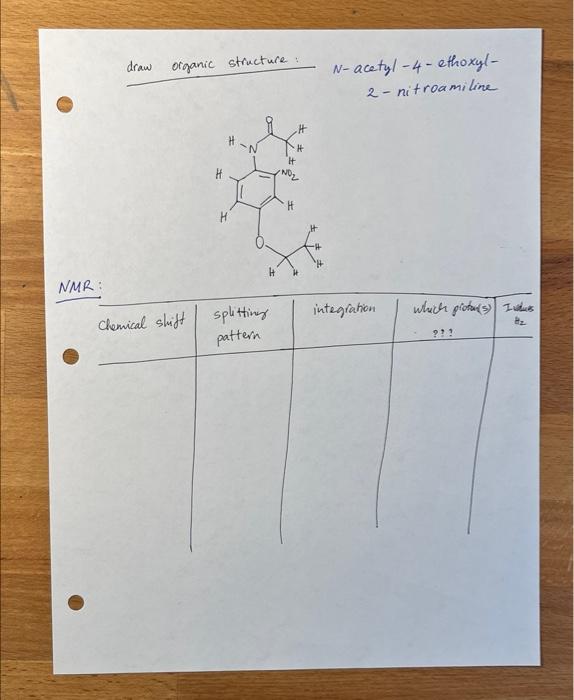 draw organic structure :
N-acetyl-4-ethoxyl-
2-nitroamiline
O
H
H
N
H
H
H
NO2
H
H
H
O
H
H
H
H
NMR:
Chemical shift
splitting pattern
integration
which proton(s) ???
J values Hz